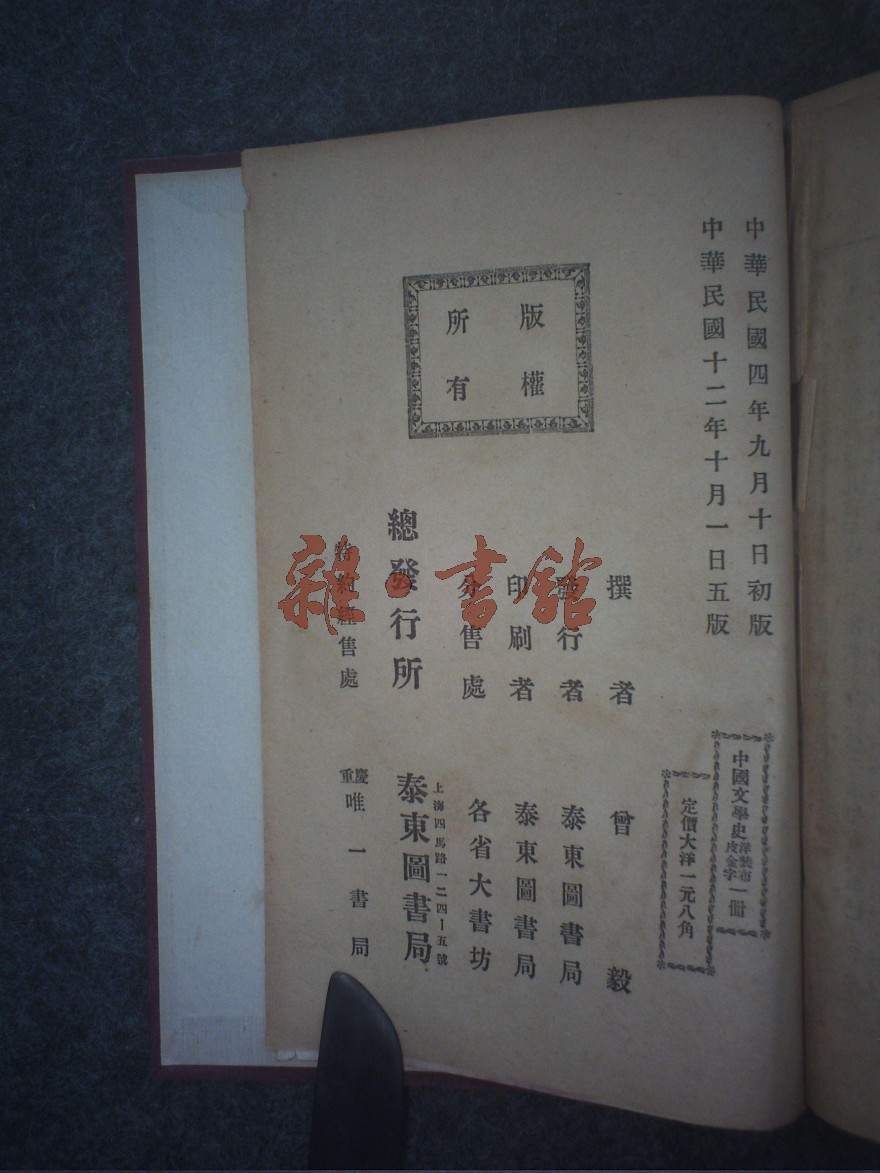 中華民國四年九月十日初版
中華民國十二年十月一日五版
中國文學史洋裝布皮金字一冊
定價大洋一元八角
版權
所有
撰者 曾毅
發行者 泰東圖書局
印刷者 泰東圖書局
分售處 各省大書坊
總發行所 上海四馬路一二四—五號
泰東圖書局
特約經售處 重慶唯一書局
雜·書館